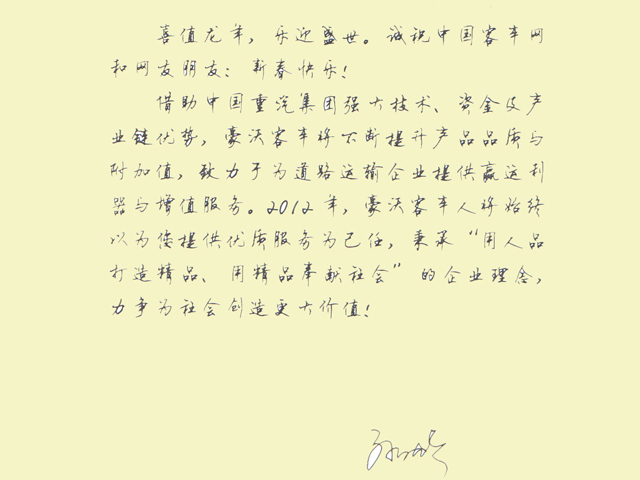 喜值龙年，乐迎盛世。诚祝中国客车网
和网友朋友：新春快乐！
借助中国重汽集团强大技术、资金及产
业链优势，豪沃客车将不断提升产品品质与
附加值，致力于为道路运输企业提供赢运利
器与增值服务。2012年，豪沃客车人将始终
以为您提供优质服务为己任，秉承“用人品
打造精品、用精品奉献社会”的企业理念，
力争为社会创造更大价值！